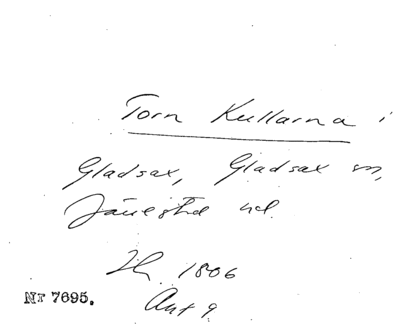 Torn Kullarna i
Gladsax, Gladsax sn,
Järrestad hd.
1806
Akt 9
Nr 7695.